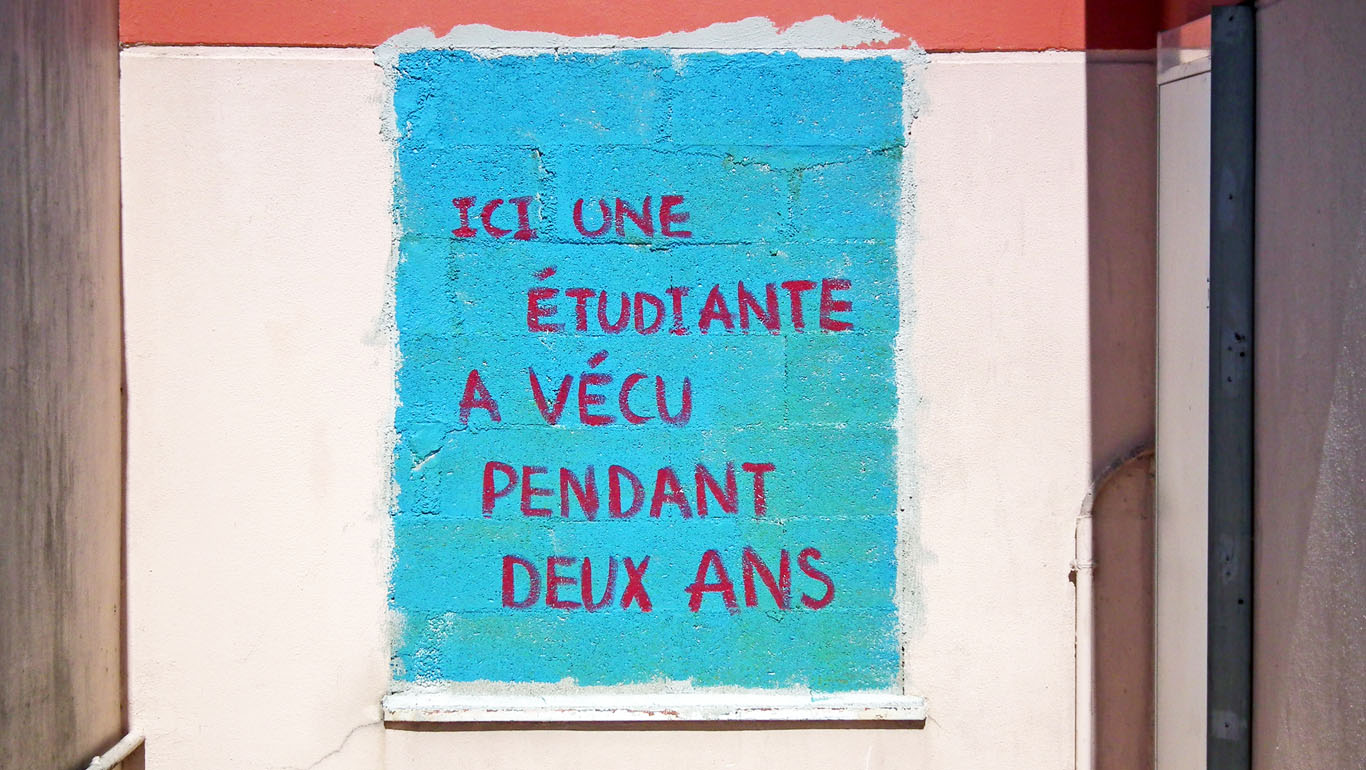 ICI UNE
ÉTUDIANTE
A VÉCU
PENDANT
DEUX ANS